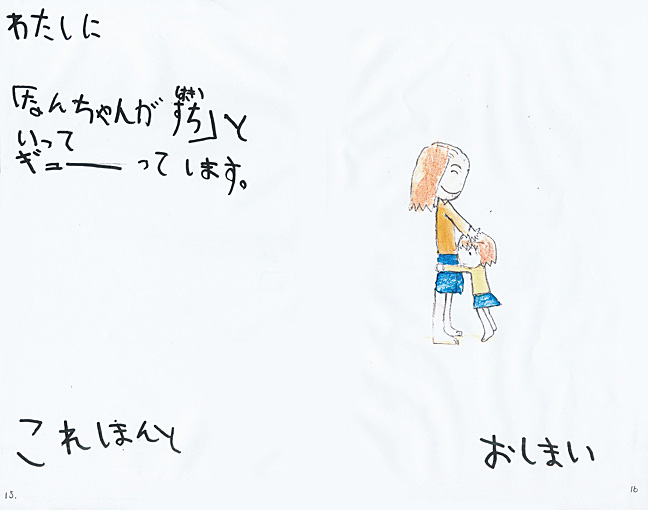 わたしに
「なんちゃんが 」と
いって
ギューって します。
これほんと
おしまい
15.
16